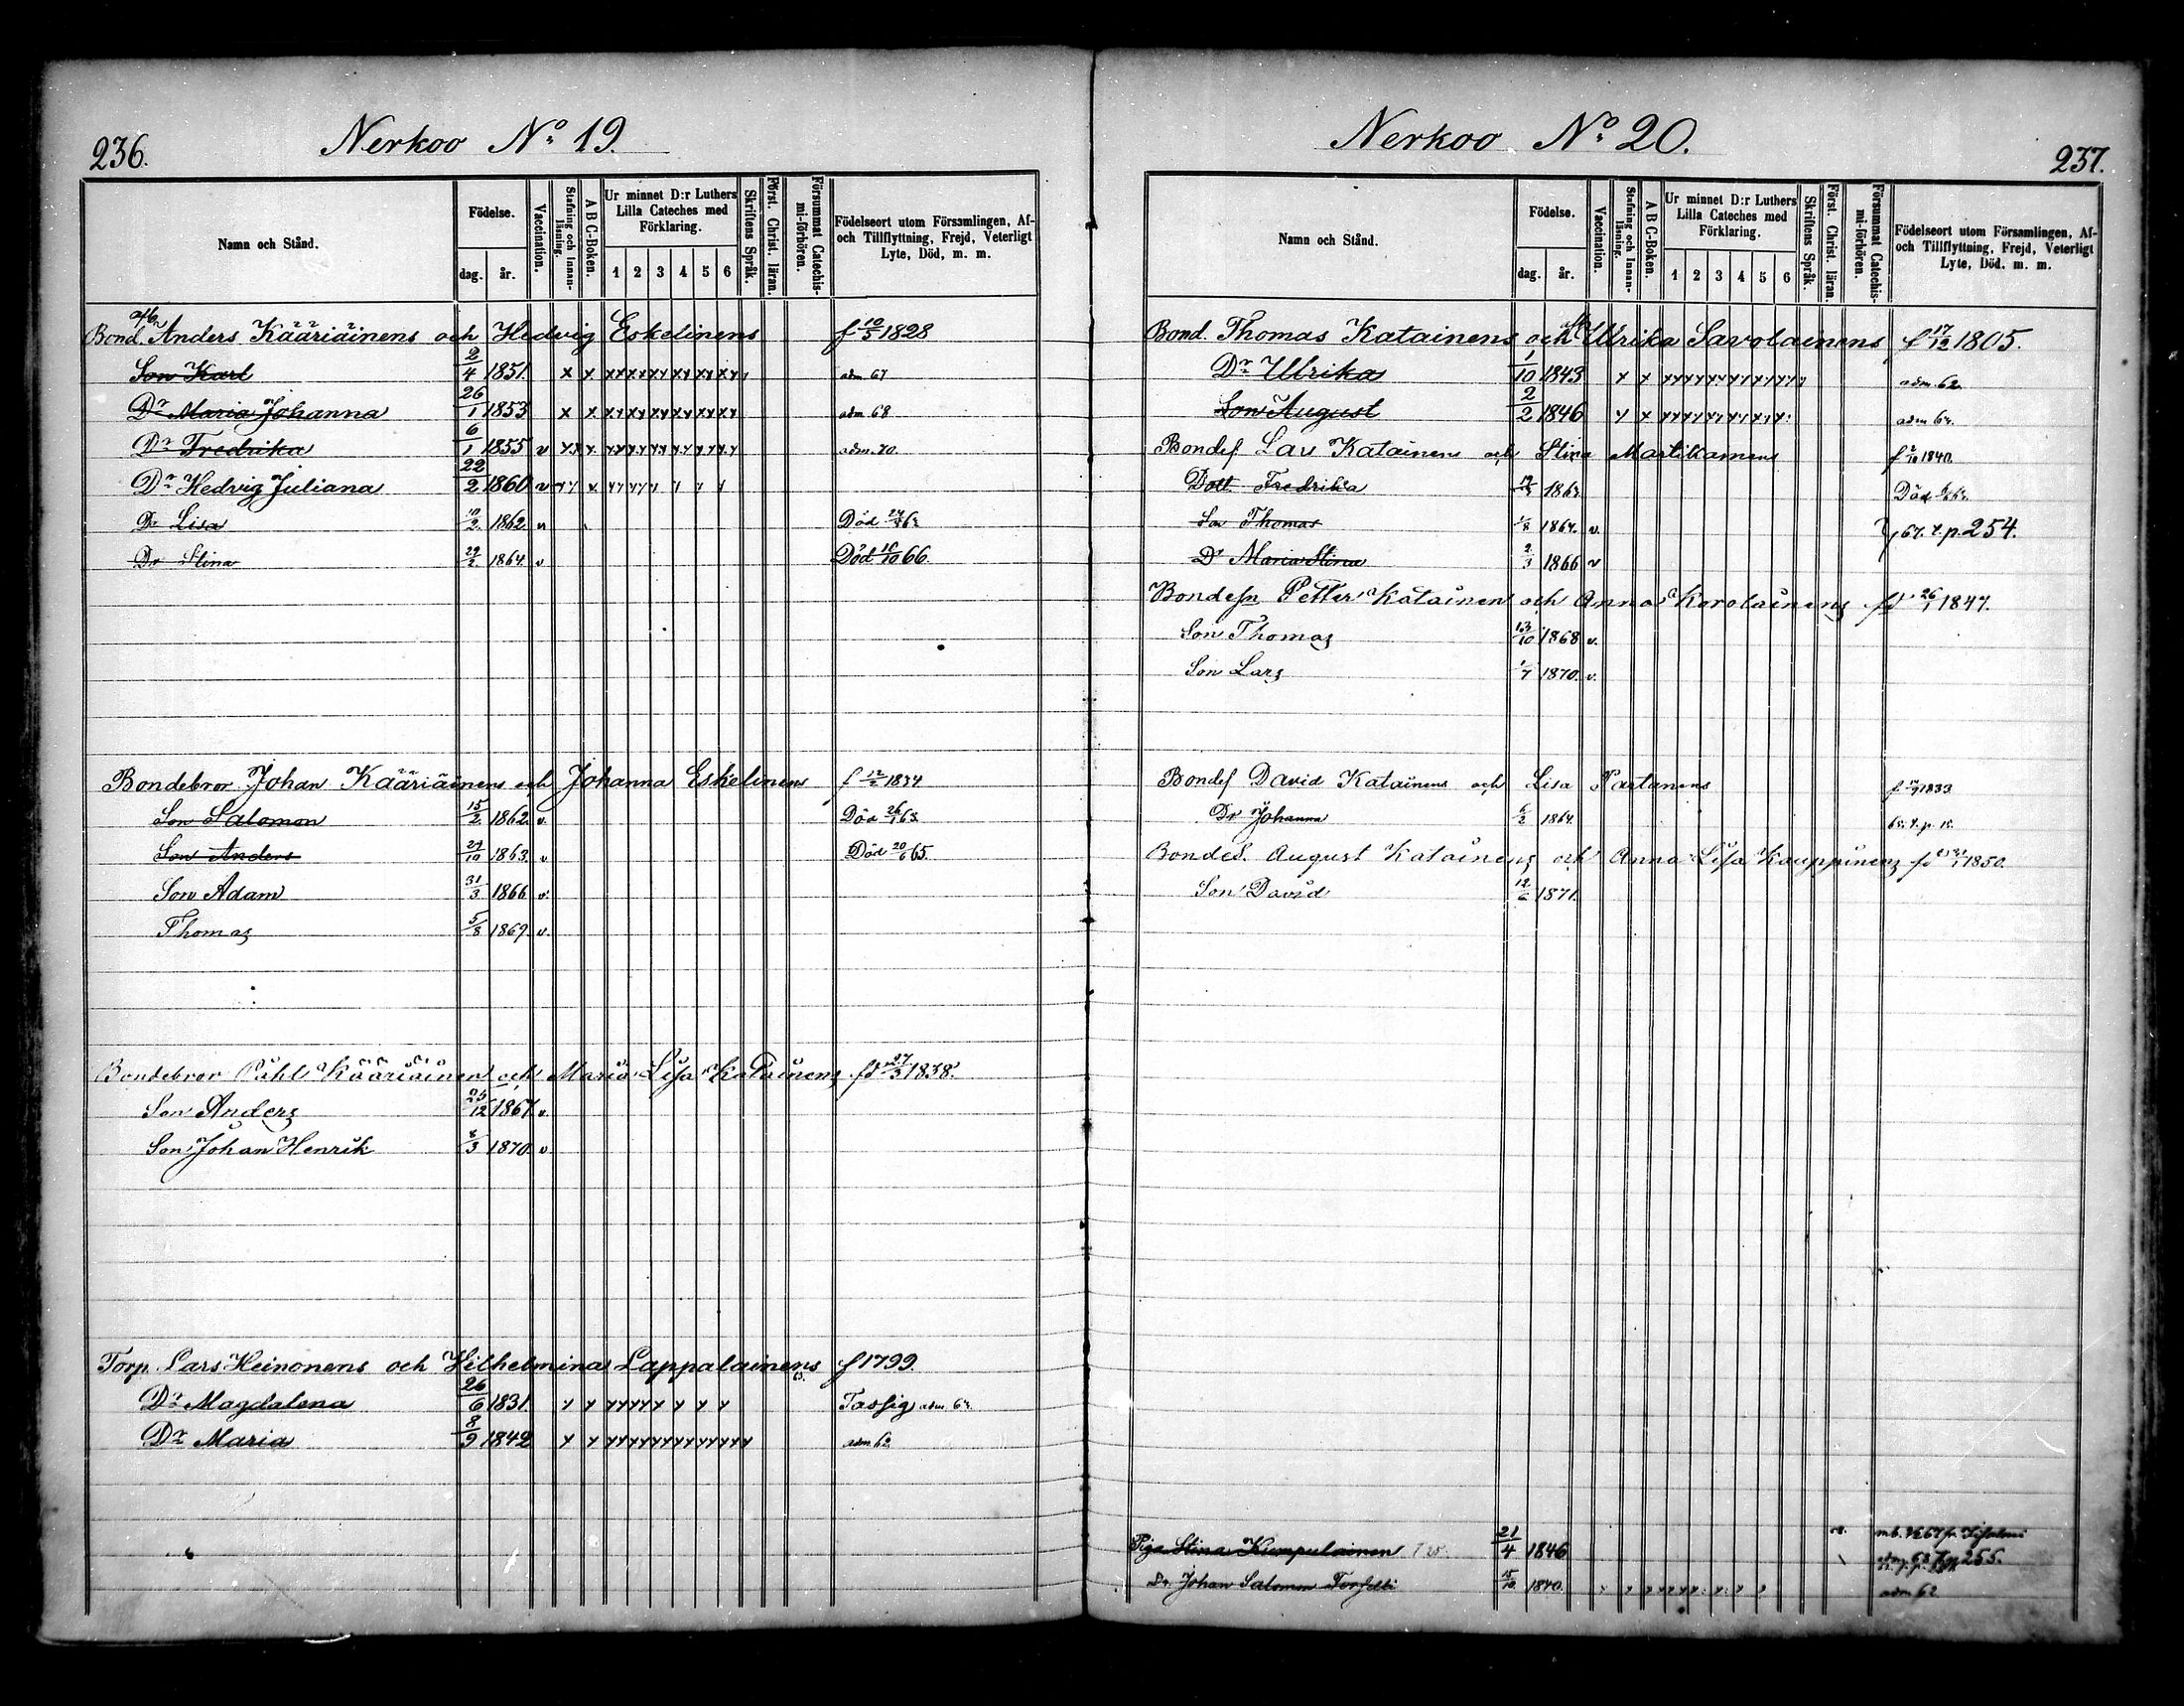 236.
Nerkoo No 19.
Namn och Stånd.
Födelse.
dag.
år.
Vaccination.
Stafning och Innanläsning.
A B C-Boken.
Ur minnet D:r Luthers Lilla Cateches med Förklaring.
1 2 3 4 5 6
Skriftens Språk.
Först. Christ. läran.
Försummat Catechismi-förhören.
Födelseort utom Församlingen, Af- och Tillflyttning, Frejd, Veterligt Lyte, Död, m. m.
Bond. Anders Kääriäinens och Hedvig Eskelinens f 10/5 1828
Son Karl 2/4 1851. x x adm 67
Dr Maria Johanna 26/1 1853 x x adm. 68
Dr Fredrika 6/1 1855 v adm. 70.
Dr Hedvig Juliana 22/2 1860 v
Dr Lisa 10/2. 1862 v Död
Dr Stina 29/2. 1864. v Död 16/10 66.
Bondebror Johan Kääriäinens och Johanna Eskelinens f 12/2 1834
Son Salomon 15/2. 1862. v. Död 26/1 63.
Son Anders 29/10 1863. v Död 20/6 65.
Son Adam 31/3 1866 v.
Thomas 5/8 1869. v.
Bondebror Påhl Kääriäinen och Maria Lisa Katainens fd 27/3 1838.
Son Anders 25/12 1867. v.
Son Johan Henrik 8/3 1870. v
Torp. Lars Heinonens och Wilhelmina Lappalainens f 1799.
Dr Magdalena 26/6 1831. Fattig adm.
Dr Maria 8/9 1842 adm 62
Nerkoo No 20.
237.
Namn och Stånd.
Födelse.
dag.
år.
Vaccination.
Stafning och Innanläsning.
A B C-Boken.
Ur minnet D:r Luthers Lilla Cateches med Förklaring.
1 2 3 4 5 6
Skriftens Språk.
Först. Christ. läran.
Försummat Catechismi-förhören.
Födelseort utom Församlingen, Af- och Tillflyttning, Frejd, Veterligt Lyte, Död. m. m.
Bond. Thomas Katainens och Ulrika Savolainens f 17/12 1805.
Dr Ulrika 1/10 1843 adm. 62.
Son August 2/2 1846 adm
Bondes Lars Katainens och Stina Martikainens f 2/10 1840.
Dott. Fredrika Död
Son Thomas 1/8 1864. v. 67. t. p. 254.
Dr Maria Stina 2/3 1866 v
Bondesn Petter Katainens och Anna Korolainens fd 26/1 1847.
Son Thomas 13/10 1868 v.
Son Lars 1/7 1870. v.
Bondes David Katainens och Lisa Partanens 1833
Dr Johanna 6/2 1864.
Bondes. August Katainens och Anna Lisa Kauppinens fd 1850.
Son David 12/6 1871.
Piga Stina Kumpulainen 21/4 1846
255.
Dr. Johan Salomon 15/10. 1840. adm 62.